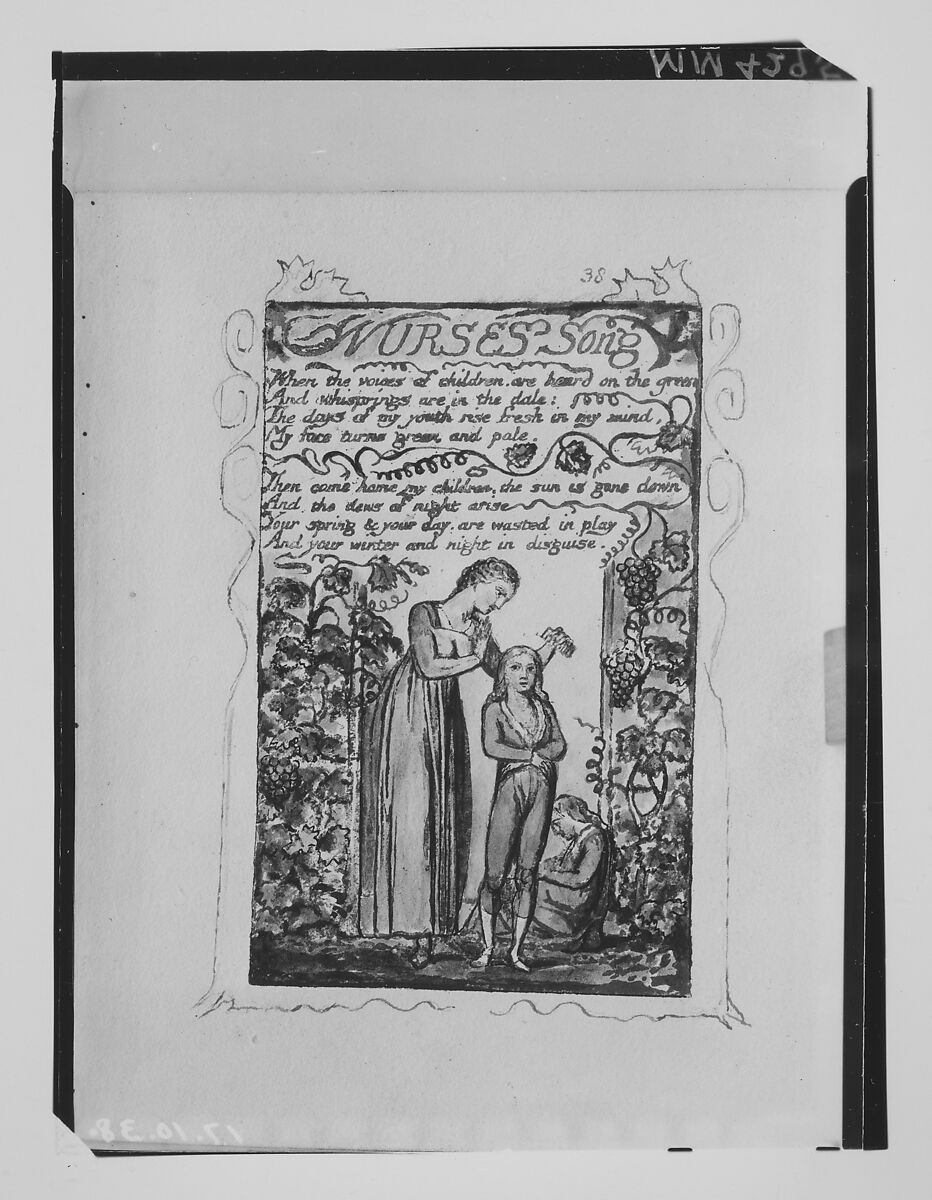 MIM 4296
38
NURSES Song
When the voices of children, are heard on the green
And whisprings are in the dale:
The days of my youth rise fresh in my mind,
My face turns green and pale.
Then come home my children, the sun is gone down
And the dews of night arise
Your spring & your day, are wasted in play
And your winter and night in disguise.
17.10.38.